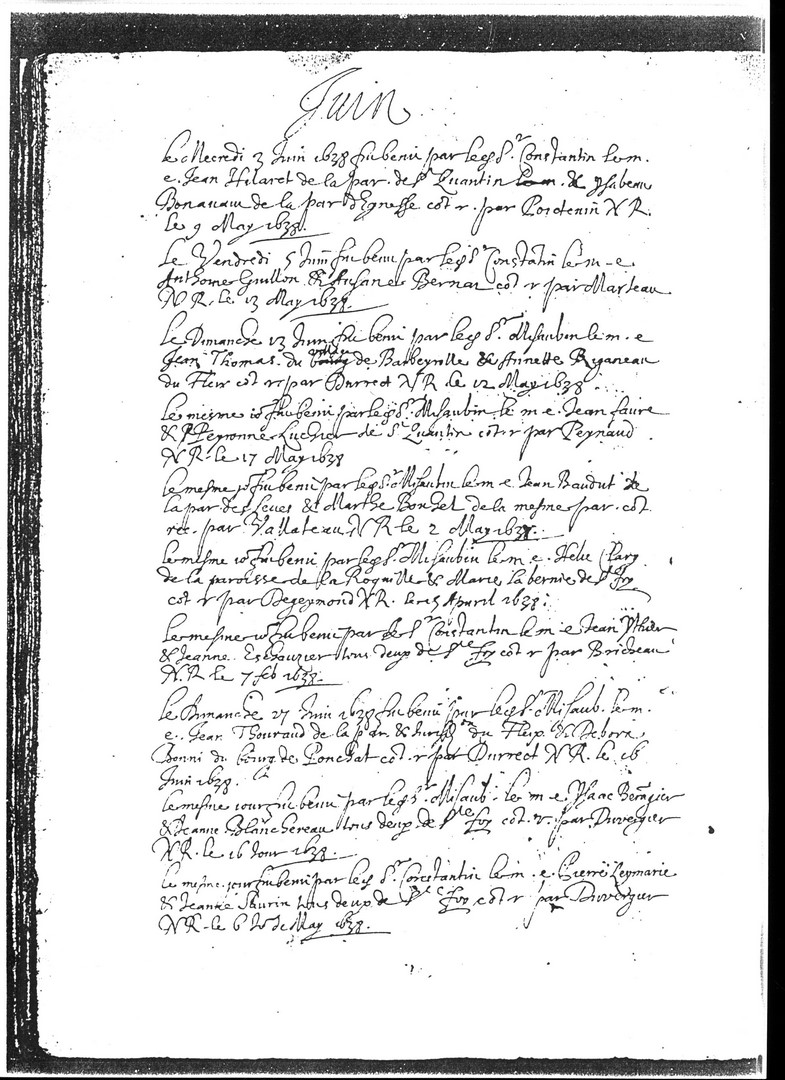 Juin
le Mecredi 3 Juin 1638 fut beni par led Sr. Constantin le m.
e. Jean Hilaret de la par. de St Quantin & Ysabeau
de la par d'Eynesse cot r. par N R.
le 9 May 1638.
Le Vendredi 5 Juin fut beni par led Sr Constatin le m - e
Anthoine Guillon & Susane Bernar cot r par Marteau
N R. le 13 May 1638.
Le Dimanche 13 Juin fut beni par led Sr. Misaubin le m. e
Jean Thomas. du de & Annette Riganeau
du Fleix cot r par Durrect N R le 12 May 1638
le mesme jo fut beni par led Sr. Misaubin le m e Jean faure
& Peyronne de St Quantin cot r par Peynaud
N R. le 17 May 1638
le mesme jo fut beni par led Sr Misaubin le m e Jean Baudut de
la par des Leves & Marthe de la mesme par. cot
rec. par Vallateau N R le 2 May 1638.
le mesme jo fut beni par led Sr. Misaubin le m. e. Helie Clary
de la paroisse de la Roquille & Marie Labernie de Ste Foy
cot r par Degeymond N R. le 15 Apuril 1638.
le mesme jo fut beni par le Sr Constantin le m e Jean Ythier
& Jeanne. Eschauzier tous deux de Ste Foy cot r par Brideau
N. R. le 7 feb 1638.
le Dimanche 27 Juin 1638 fut beni par led Sr Misaub. le m.
e. Jean Thouraud de la par. & du Fleix. & Debora
Bonni du bourg de Ponchat cot. r par Durrect N R. le 16
Juin 1638.
le mesme jour fut beni par led Sr. Misaub. le m e. Ysaac
& Jeanne Blanchereau tous deux de Ste Foy cot. r. par Duvergier
N R. le 16 1638.
le mesme jour fut beni par led Sr. Constantin le m. e. Pierre Leymarie
& Jeanne Saurin tous deux de Ste Foy cot r par Duvergier
N R. le 6 de May 1638.